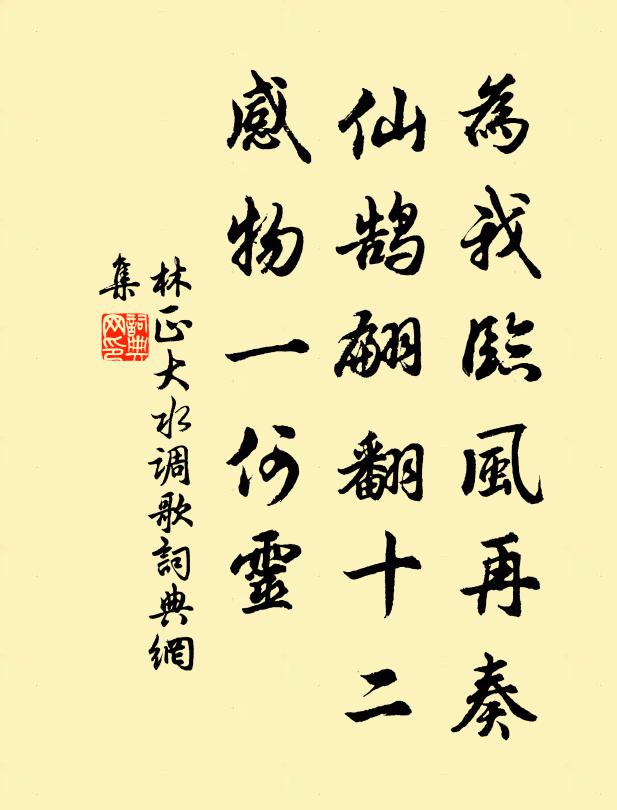 為我臨風再奏
仙鹄翩翻十二
感物一何靈
林正大水调歌詞典網
集
詞典
网印